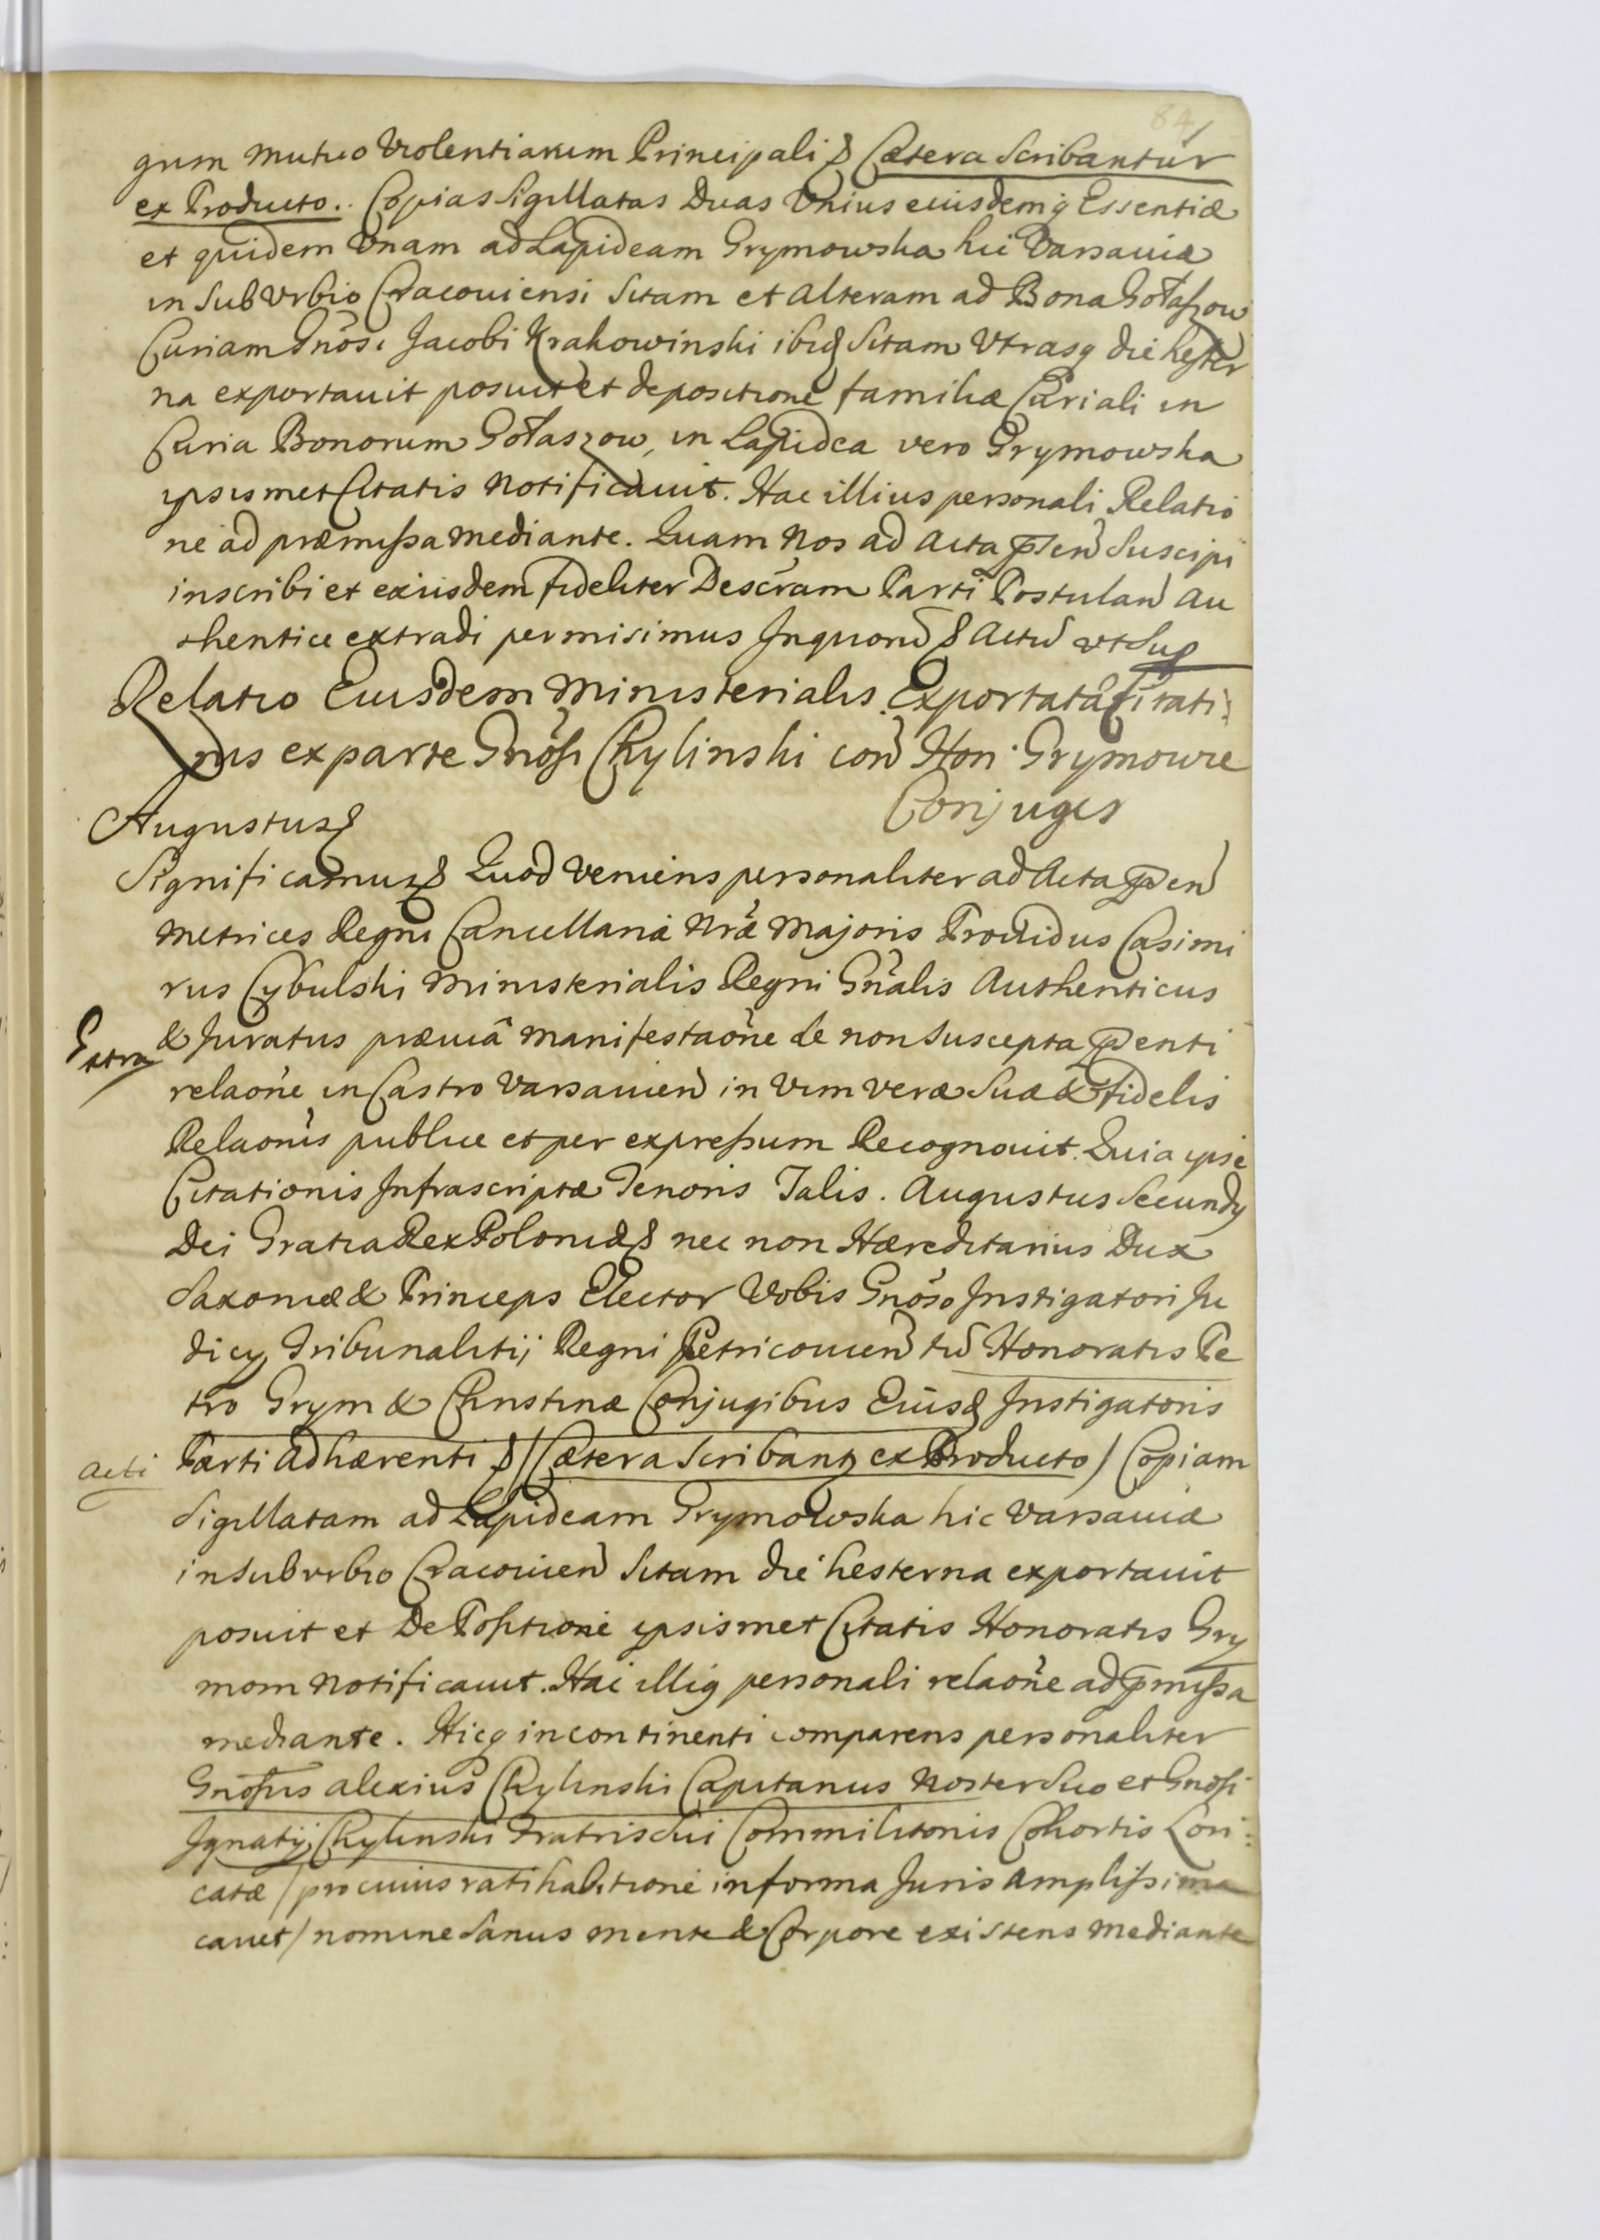 84
gum mutuo Violentiarum Principali & Cætera Scribantur
ex Producto. Copias Sigillatas Duas Unius eiusdemq Essentiæ
et quidem Unam ad Lapideam Grymowska hic Varsaviæ
in SubUrbio Cracoviensi Sitam et Alteram ad Bona Gołaszow
Curiam Gnosi Jacobi Krakowinski ibid Sitam Utrasq die hester
na exportavit posuit et de positione familiæ Curiali in
Curia Bonorum Gołaszow, in Lapidea vero Grymowska
ipsismet Citatis Notificavit. Hac illius personali Relatio
ne ad præmissa mediante. Quam Nos ad Acta pnten Suscipi
inscribi et eiusdem fideliter Descram Parti Postulan Au
thentice extradi permisimus In quoru & Actu ut Sup
Relatio Eiusdem Ministerialis Exportatæ Citati:
nis ex parte Gnosi Chylinski con Hon: Grymowie
Conjuges
Augustus &
Significamus & Quod Veniens personaliter ad Acta pnten
Metrices Regni Cancellariæ Nræ Majoris Providus Casimi
rus Cybulski Ministerialis Regni Gnalis Authenticus
Extra
& Juratus præviâ manifestaone de non Suscepta pnti
relaone in Castro Varsavien in Vim Veræ Suæ & Fidelis
Relaonis publice et per expressum Recognovit. Quia ipse
Citationis Infrascriptæ Tenoris Talis. Augustus Secundg
Dei Gratia Rex Poloniæ & nec non Hæreditarius Dux
Saxoniæ & Princeps Elector Vobis Gnoso Instigatori Ju
dicy Tribunalitij Regni Petricovien tu Honoratis Pe
tro Grym & Christinæ Conjugibus Eiusd Instigatoris
acti
Parti Adhærenti & / Cætera Scribant ex Producto / Copiam
Sigillatam ad Lapideam Grymowska hic Varsaviæ
in Suburbio Cracovien Sitam die hesterna exportavit
posuit et De Positione ipsismet Citatis Honoratis Gry
mom Notificavit. Hac illig personali relaone ad pmissa
mediante. Hicq in continenti comparens personaliter
Gnosus Alexius Chylinski Capitanus Noster Suo et Gnosi
Ignatij Chylinski Fratris Sui Commilitonis Cohortis Lori:
catæ / pro cuius ratihabitione in forma Juris Amplissima
cavet / nomine Sanus mente & Corpore existens mediante